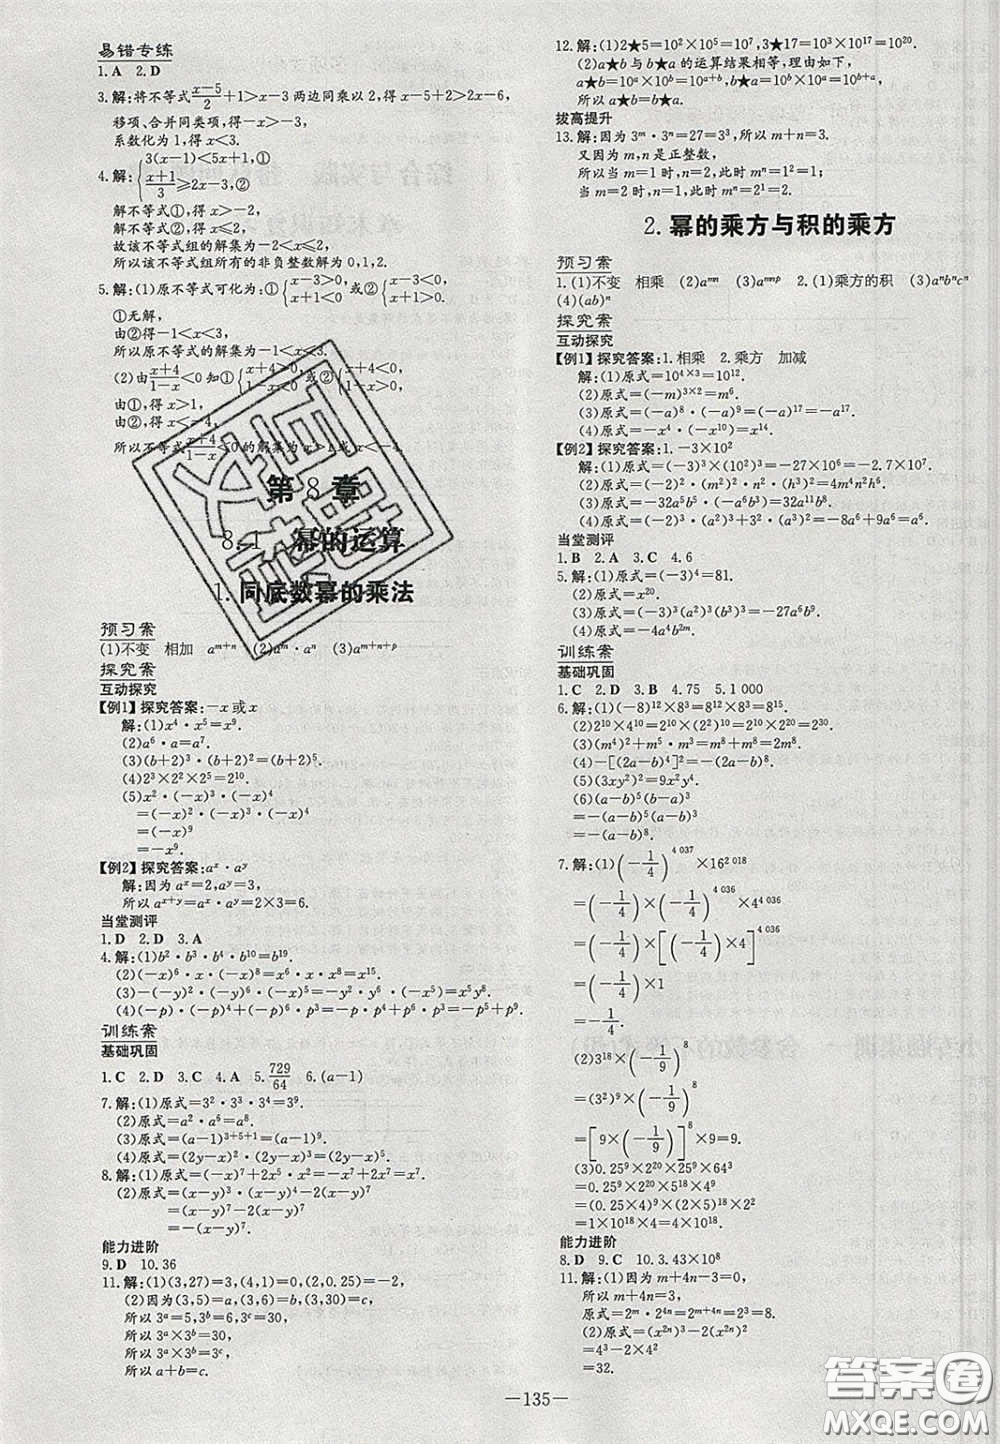 易错专练
1.A 2.D
3.解:将不等式(x-5)/2+1>x-3两边同乘以2,得x-5+2>2x-6,
移项、合并同类项,得-x>-3,
系数化为1,得x<3.
4.解:{3(x-1)<5x+1,① (x+1)/3≥2x-3,②
解不等式①,得x>-2,
故该不等式组所有的非负整数解为0,1,2.
5.解:(1)原不等式可化为:①{x-3>0, x+1<0 或②{x-3<0, x+1>0.
①无解,
由②得-1<x<3,
所以原不等式的解集为-1<x<3.
(2)由(x+4)/(1-x)<0知①
由①,得x>1,
由②,得x<-4,
第8章
8.1 幂的运算
1.同底数幂的乘法
预习案
(1)不变 相加 a^{m+n} (2)a^m·a^n (3)a^{m+n+p}
探究案
互动探究
【例1】探究答案:-x或x
解:(1)x^4·x^5=x^9.
(2)a^6·a=a^7.
(3)(b+2)^3·(b+2)^2=(b+2)^5.
(4)2^3×2^2×2^5=2^{10}.
(5)x^2·(-x)^3·(-x)^4
=(-x)^2·(-x)^3·(-x)^4
=(-x)^9
=-x^9.
【例2】探究答案:a^x·a^y
解:因为a^x=2,a^y=3,
所以a^{x+y}=a^x·a^y=2×3=6.
当堂测评
1.D 2.D 3.A
4.解:(1)b^2·b^3·b^4·b^{10}=b^{19}.
(2)(-x)^6·(-x)^5·(-x)^3=x^6·x^5·x^3=x^{14}.
(3)(-y)^2·(-y)^3·(-y)^4=-y^2·y^3·y^4=-y^9.
训练案
基础巩固
1.C 2.D 3.C 4.A 5.729/64 6.(a-1)
7.解:(1)原式=3^2·3^3·3^4=3^9.
(2)原式=a^2·a^6=a^8.
(3)原式=(a-1)^{3+5+1}=(a-1)^9.
(4)原式=(2y-x)^4·(2y-x)=(2y-x)^5.
8.解:(1)原式=(-x)^7+2x^7=-x^7+2x^7=x^7.
(2)原式=(x-y)^3·(x-y)^4-2(x-y)^7
=(x-y)^7-2(x-y)^7
=-(x-y)^7.
能力进阶
9.D 10.36
11.解:(1)(3,27)=3,(4,1)=0,(2,0.25)=-2.
(2)因为(3,5)=a,(3,6)=b,(3,30)=c,
所以3^a=5,3^b=6,3^c=30,
所以3^a×3^b=30,
所以3^a×3^b=3^c,
所以a+b=c.
12.解:(1)2★5=10^2×10^5=10^7,3★17=10^3×10^{17}=10^{20}.
(2)a★b与b★a的运算结果相等,理由如下:
a★b=10^a×10^b=10^{a+b},b★a=10^b×10^a=10^{b+a},
所以a★b=b★a.
拔高提升
13.解:因为3^m·3^n=27=3^3,所以m+n=3.
又因为m,n是正整数,
所以当m=1时,n=2,此时m^n=1^2=1;
当m=2时,n=1,此时m^n=2^1=2.
2.幂的乘方与积的乘方
预习案
1.(1)不变 相乘 (2)a^{mn} (3)a^{mnp} 2.(1)乘方的积 (3)a^nb^nc^n
(4)(ab)^n
探究案
互动探究
【例1】探究答案:1.相乘 2.乘方 加减
解:(1)原式=10^{4×3}=10^{12}.
(2)原式=(-m)^{3×2}=m^6.
(3)原式=(-a)^8·(-a)^9=(-a)^{17}=-a^{17}.
(4)原式=-x^4·(-x^{10})=x^{14}.
【例2】探究答案:1.-3×10^2
解:(1)原式=(-3)^3×(10^2)^3=-27×10^6=-2.7×10^7.
(2)原式=(-2)^2·(m^2)^2·n^2·(-m^2n)=-4m^6n^3.
(3)原式=-32a^5b^5·(-a^3b^3)=32a^8b^8.
当堂测评
1.B 2.A 3.C 4.6
5.解:(1)原式=(-3)^4=81.
(2)原式=x^{20}.
(4)原式=-4a^4b^2c^6.
训练案
基础巩固
1.C 2.D 3.B 4.75 5.1 000
6.解:(1)(-8)^{12}×8^3=8^{12}×8^3=8^{15}.
(2)2^{10}×4^{10}=2^{10}×(2^2)^{10}=2^{10}×2^{20}=2^{30}.
(3)(m^4)^2+m^5·m^3=m^8+m^8=2m^8.
(4)-[(2a-b)^4]^2=-(2a-b)^8.
(5)(3xy^2)^2=9x^2y^4.
(6)(a-b)^5(b-a)^3
=-(a-b)^5(a-b)^3
=-(a-b)^8.
7.解:(1)(-1/4)^{4 037}×16^{2 018}
=(-1/4)×(-1/4)^{4 036}×4^{4 036}
=(-1/4)×[(-1/4)×4]^{4 036}
=(-1/4)×1
=-1/4.
(2)3^{18}×(-1/9)^8
=(3^2)^9×(-1/9)^8
=[9×(-1/9)]^8×9=9.
(3)0.25^9×2^{20}×25^9×64^3
=0.25^9×4^{10}×25^9×4^9
能力进阶
8.D 9.C 10.3.43×10^8
11.解:(1)因为m+4n-3=0,
所以m+4n=3,
原式=2^m·2^{4n}=2^{m+4n}=2^3=8.
(2)原式=(x^{2n})^3-2(x^{2n})^2
=4^3-2×4^2
=32.
—135—
答案圈
MXQE.COM